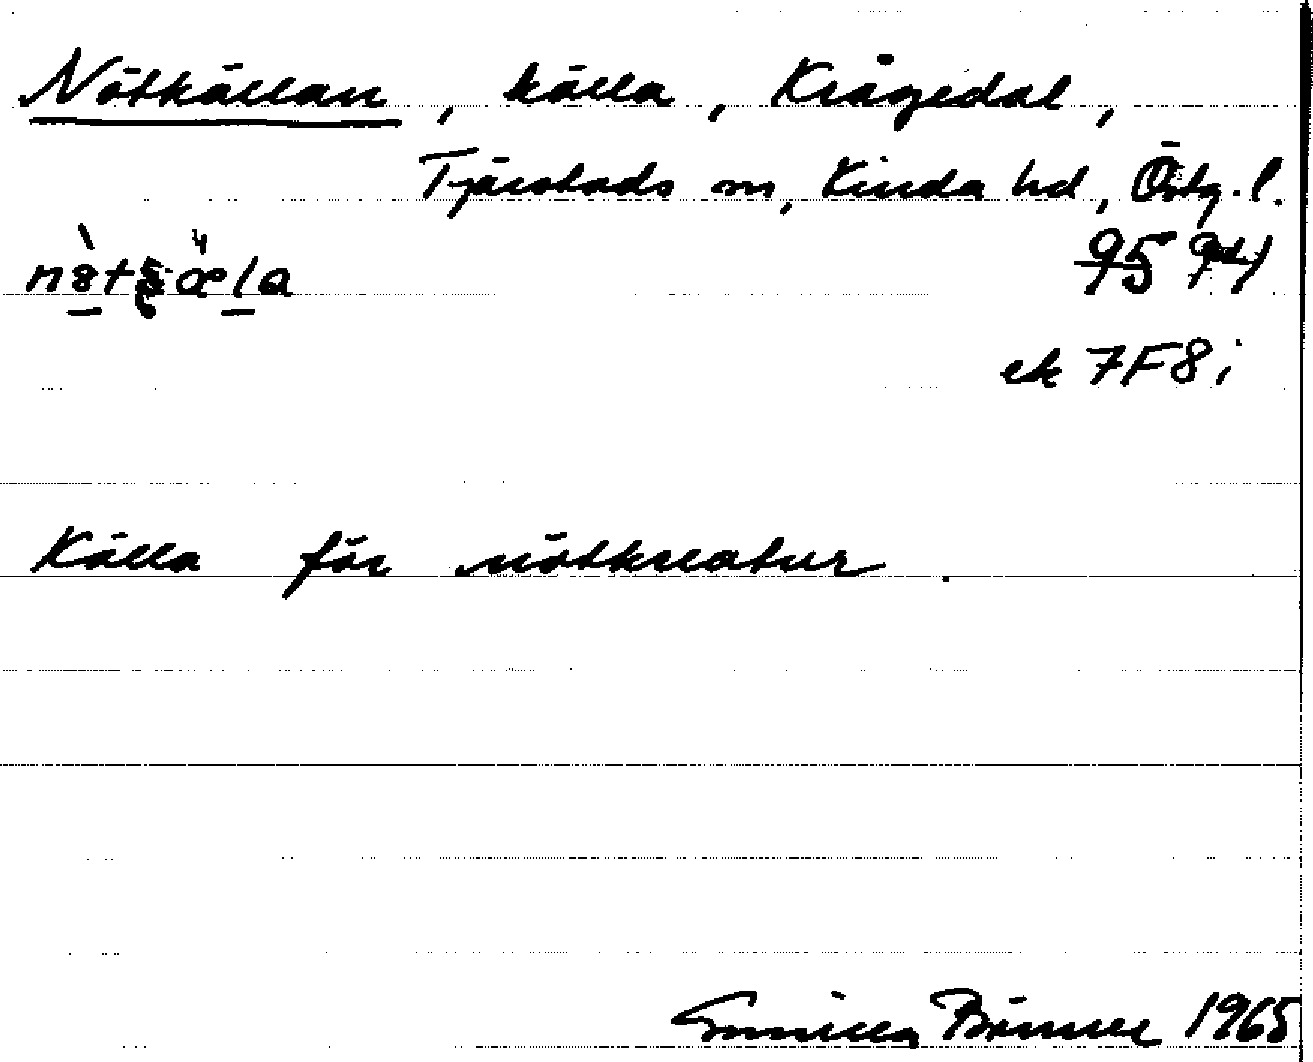 Nötkällan, källa, Krågedal,
Tjärstads sn, Kinda hd, Östg. l.
95
ek 7F8i
Källa för nötkreatur.
Gunilla 1965